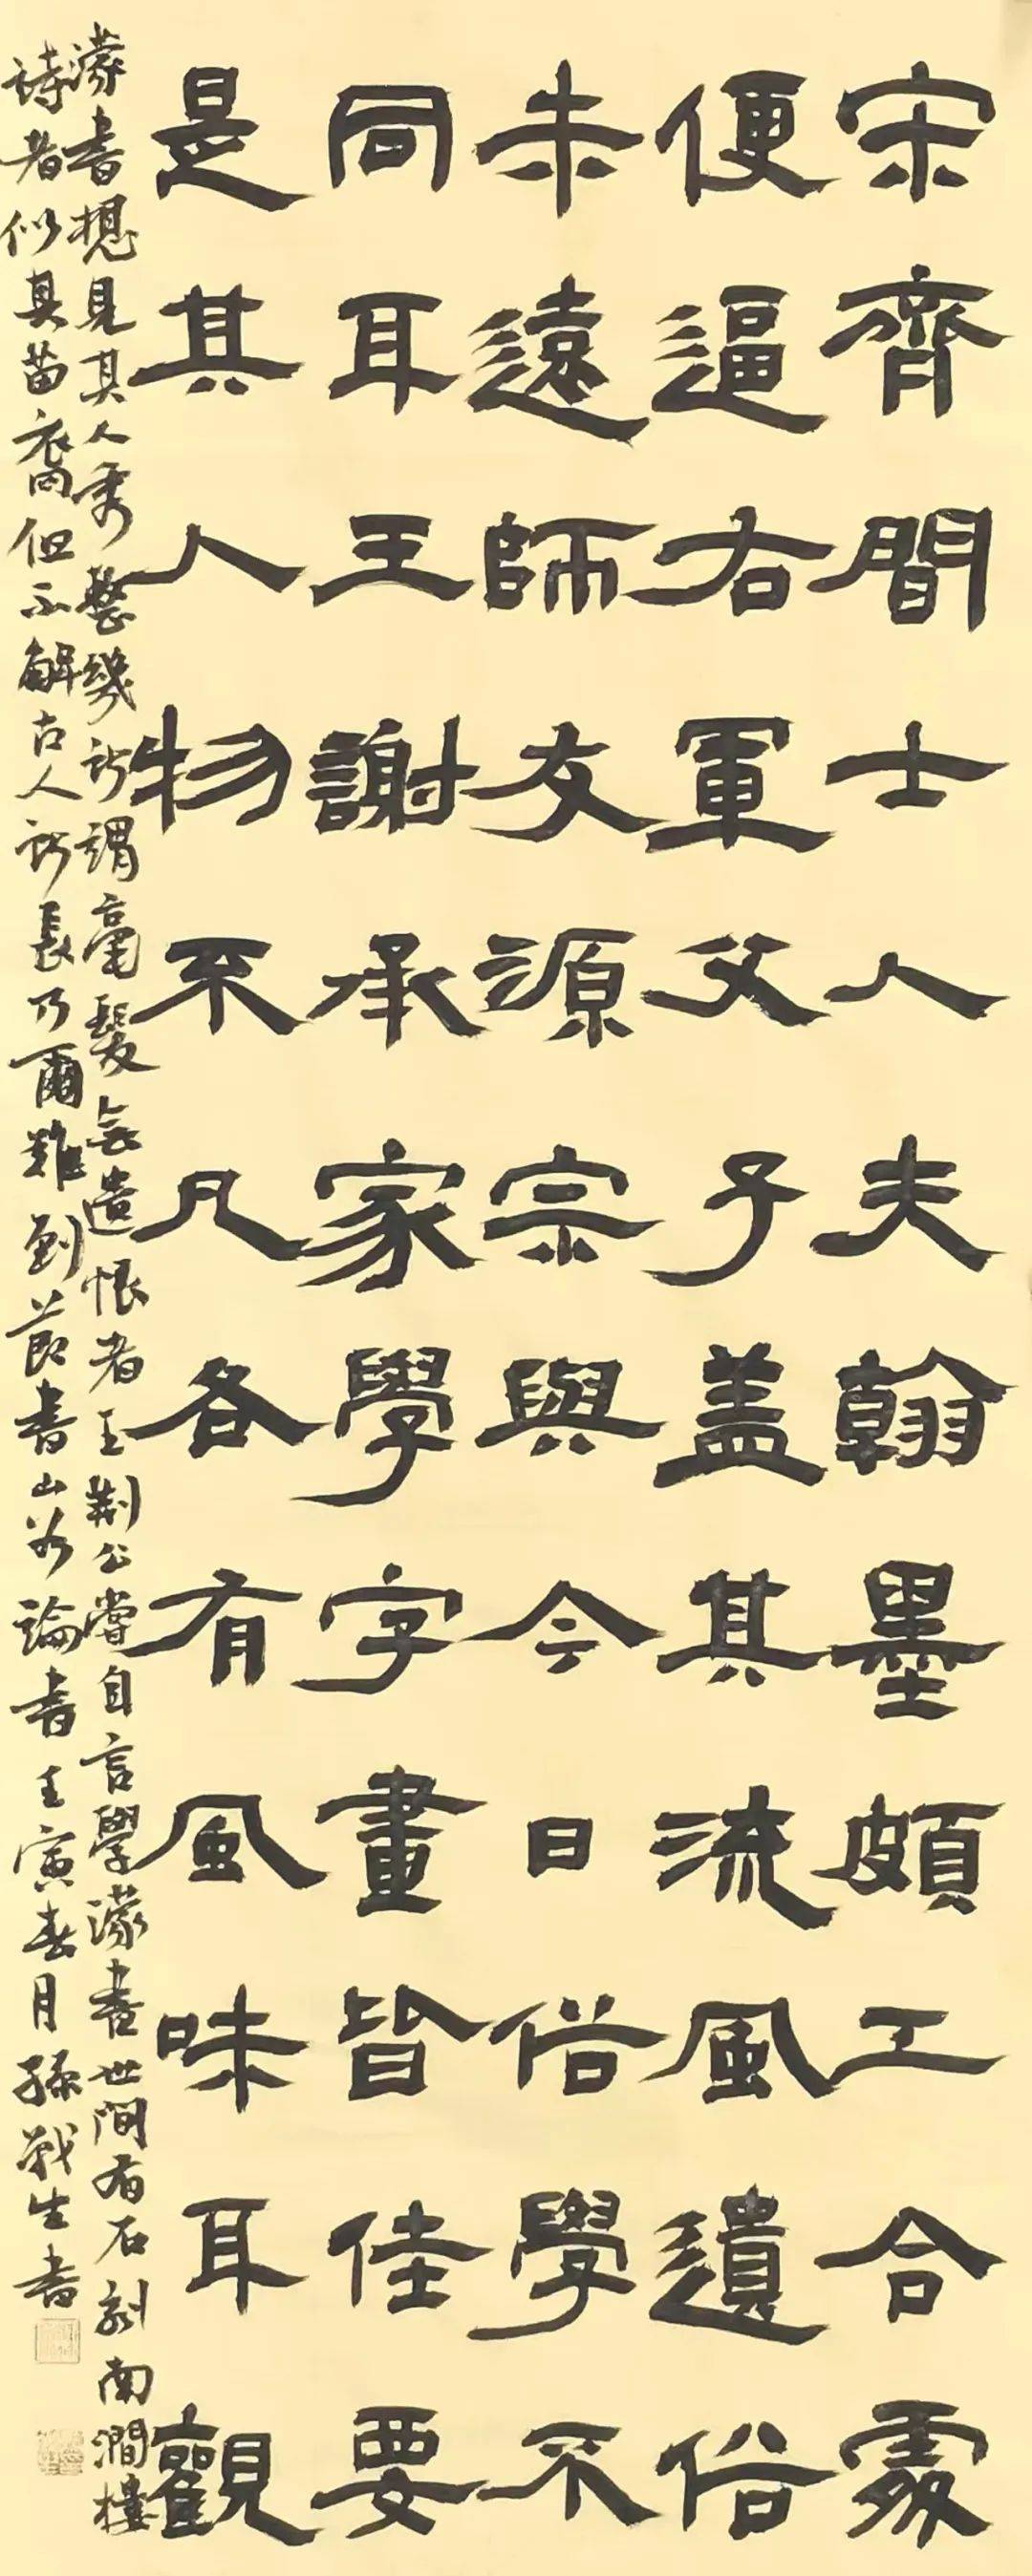 宋齊間士人夫翰墨頗工合處
便逼右軍父子盖其流風遺俗
未遠師友源宗與今日俗學不
同耳王謝承家學字畫皆佳要
是其人物不凡各有風味耳觀
濛書想見其人秀整幾所謂毫髮無遺恨者王荆公嘗自言學濛書世間有石刻南澗樓
詩者似其苗裔但不解古人所長乃爾難到節書山谷論書壬寅春月孫戰生書